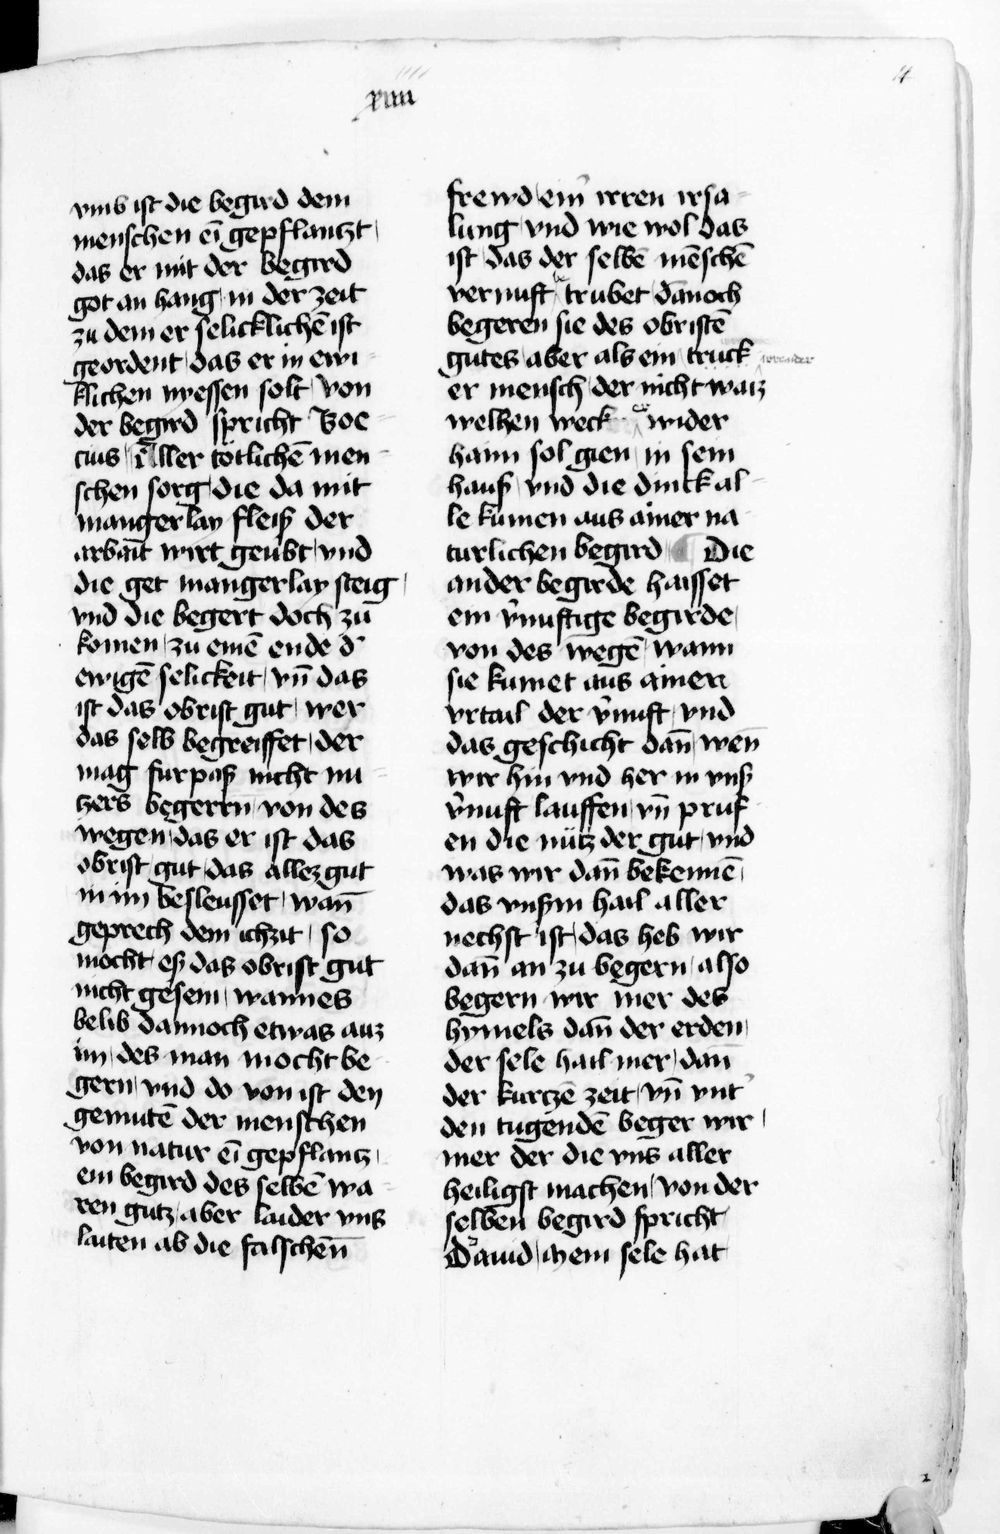 14
xiiii
vmb ist die begird dem
menschen eī gepflantzt /
das er mit der begird
got an hang / in der zeit
zu dem er selicklichē ist
geordent / das er in ewi-
klichen nyessen solt / von
der begird spricht Boe-
cius / Aller tötlichē men-
schen sorg / die da mit
mangerlay fleiß der
arbait wirt geubt / vnd
die get mangerlay steig /
vnd die begert doch zu
komen / zu einē ende d'
ewigē selickeit / vn̄ das
ist das obrist gut / wer
das selb begreiffet / der
mag furpaß nicht nu-
tzers begerrn / von des
wegen / das er ist das
obrist gut / das allez gut
in im besleusset / wan̄
geprech dem ichzit / so
möcht eß das obrist gut
nicht gesein / wann es
belib dannoch etwas auz
im / des man möcht be-
gern / vnd do von ist den
gemutē der menschen
von natur eī gepflantz /
ein begird des selbē wa-
ren gutz / aber laider vns
laiten ab die falschen̄
frewd / ein' irren irsa-
lung / vnd wie wol das
ist / das der selbē mēschē
vernuft / trubet / dānoch
begeren sie des obristē
gutes / aber als ein truck
er mensch / der nicht waiz
welhen weck er wider
haim sol gien / in sein
hauß / vnd die dinck al-
le kumen aus ainer na-
turlichen begird / Die
ander begirde haisset
ein v'nuftige begirde /
von des wegē / wann
sie kumet aus ainem
vrtail der v'nuft / vnd
das geschicht dan̄ / wen̄
wir hin vnd her in vnß
v'nuft lauffen / vn̄ pruf-
en die nütz der gut / vnd
was wir dan̄ bekennē /
das vnßm hail aller
nechst ist / das heb wir
dan̄ an zu begern / also
begern wir mer des
hymels dan̄ der erden /
der sele hail mer / dan̄
der kurczē zeit / vn̄ vnt'
den tugendē beger wir /
mer der die vns aller
heiligst machen / von der
selben begird spricht
Dauid / mein sele hat